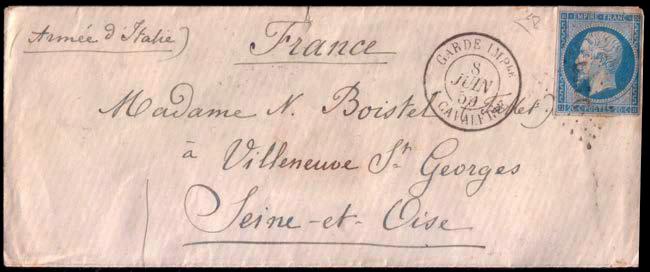 (Armée d'Italie)
France
GARDE IMPle
8
JUIN
59
CAVALERIE
EMPIRE FRANC
20 C POSTES 20 C
Madame N. Boistel
à Villeneuve St Georges
Seine-et-Oise